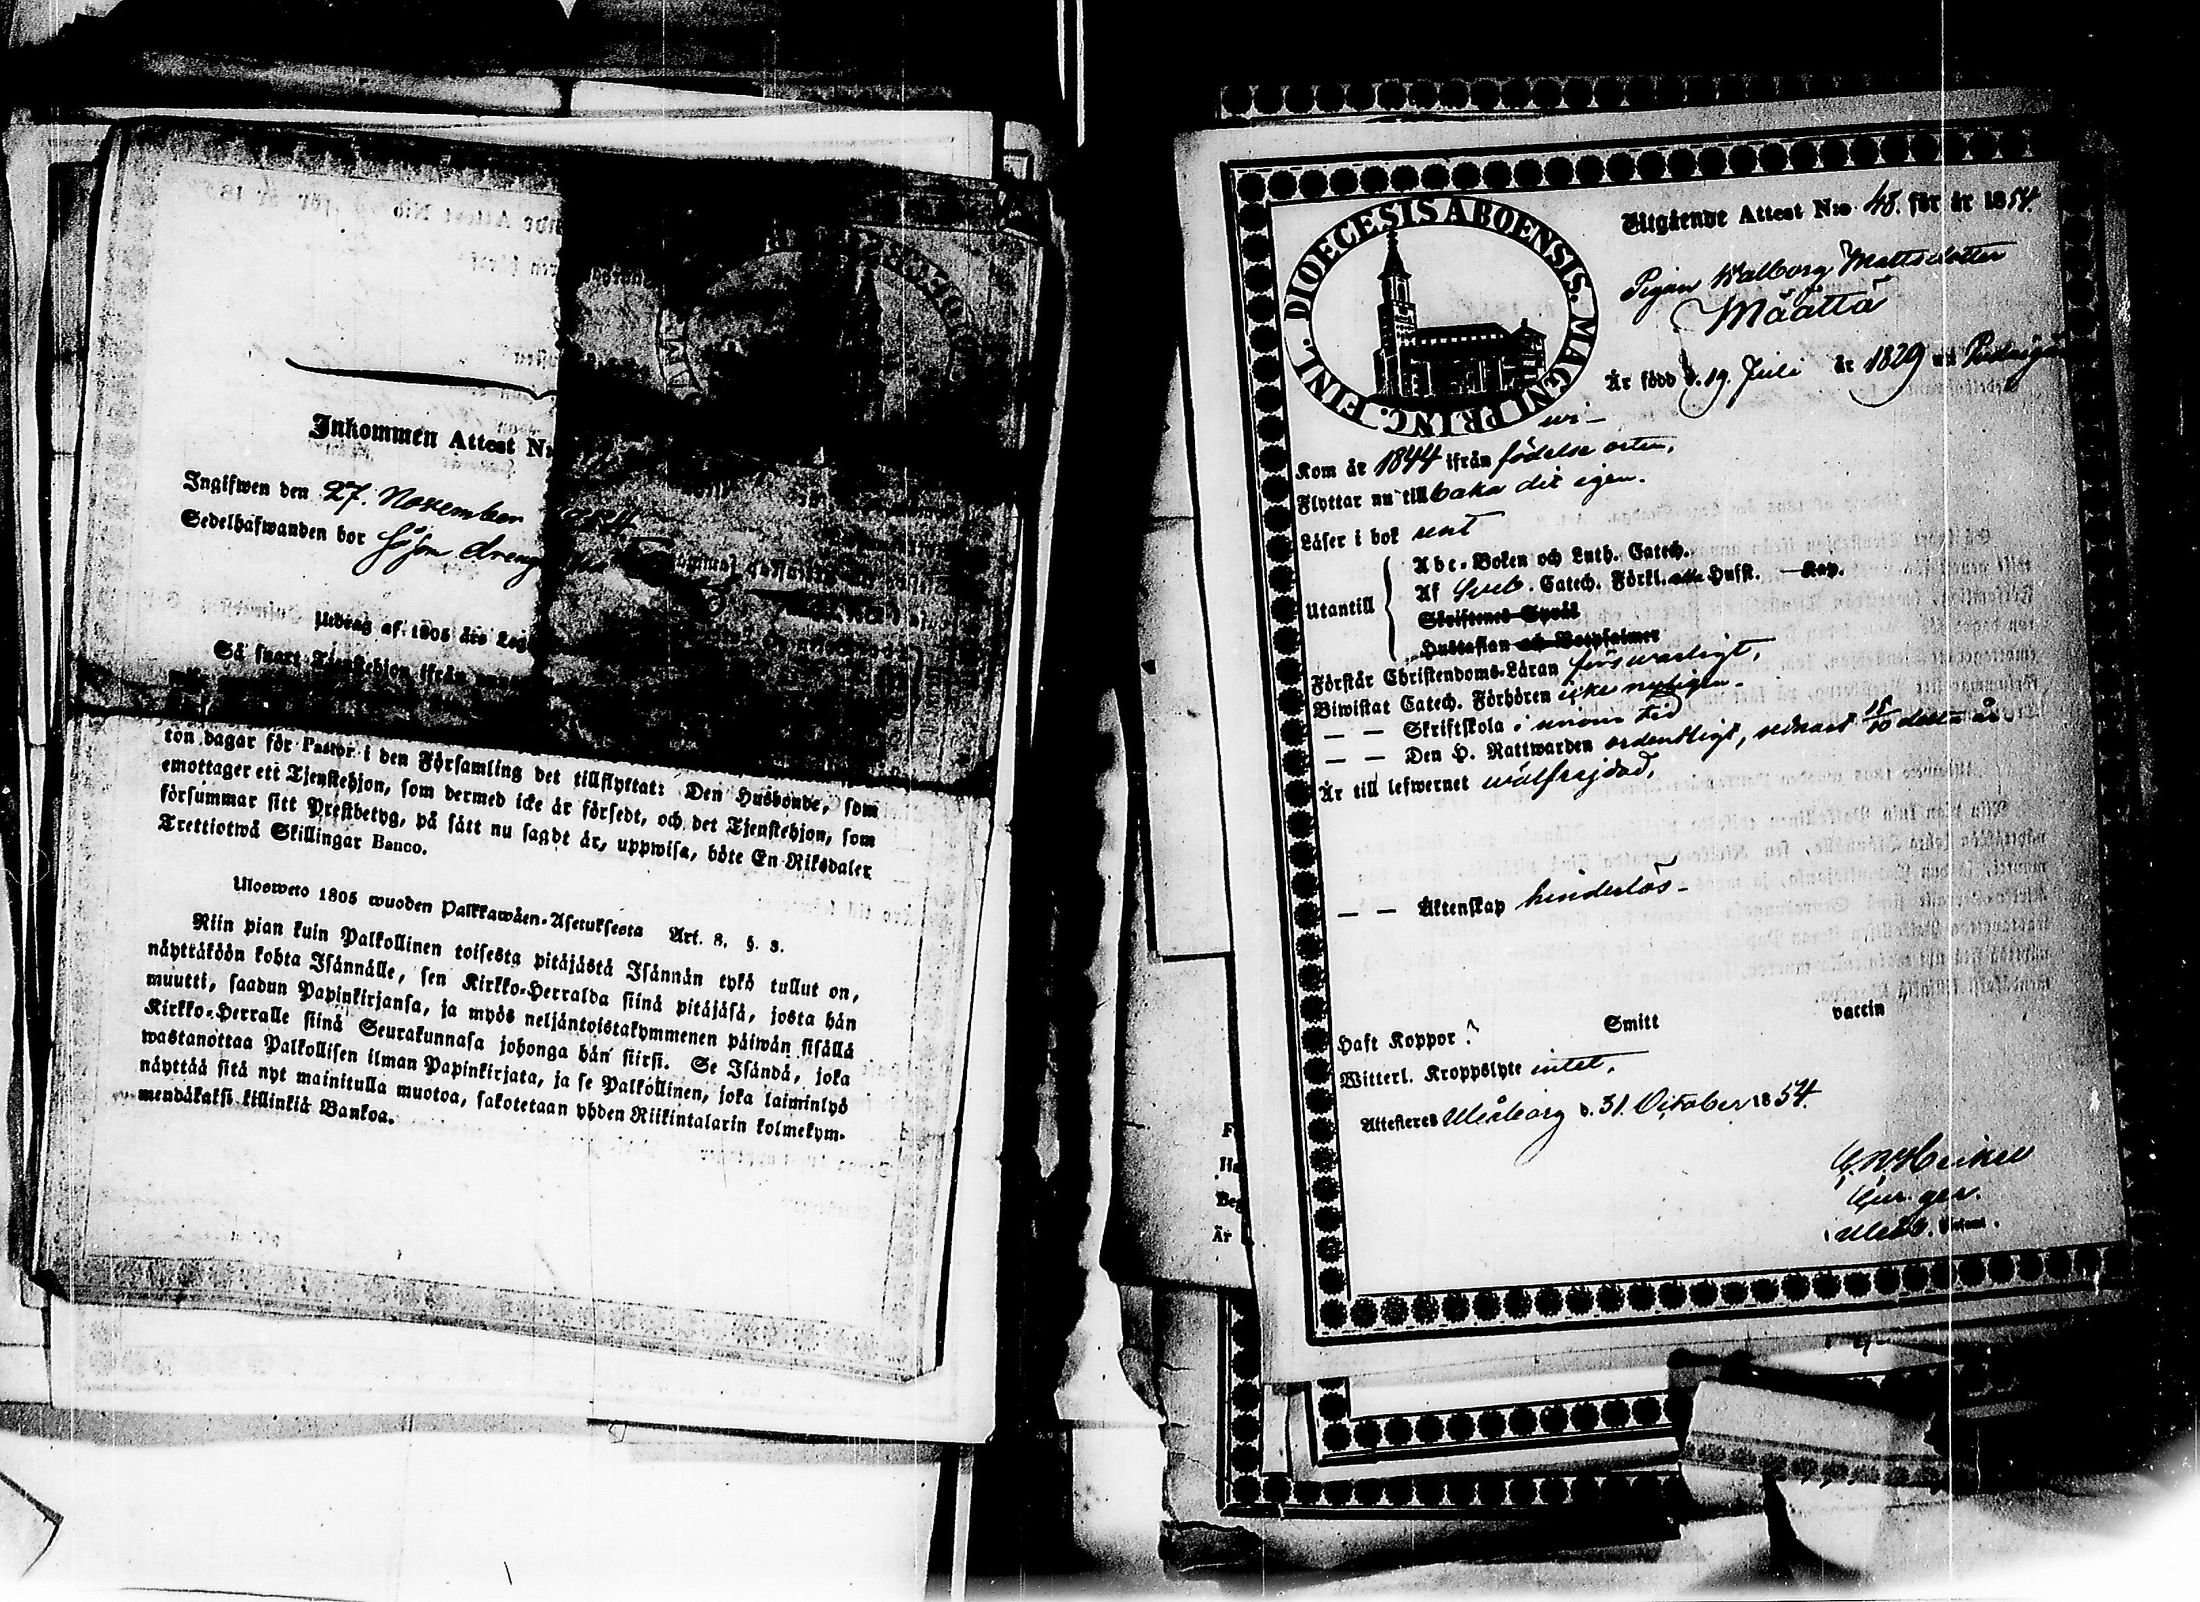 Inkommen Attest N:
Ingifwen den 27. November
Sedelhafwanden bor
Utdrag af 1805 års Leg
Så snart Tjenstehjon ifrån
ton dagar för Pastor i den Församling det tillflyttat: Den Husbonde, som
emottager ett Tjenstehjon, som dermed icke är försedt, och det Tjenstehjon, som
försummar sitt Prestbetyg, på sätt nu sagdt är, uppwisa, böte En Riksdaler
Trettiotwå Skillingar Banco.
Ulosweto 1805 wuoden Palkkawäen-Asetuksesta Art. 8. §. 3.
Niin pian kuin Palkollinen toisesta pitäjästä Isännän tykö tullut on,
näyttäköön kohta Isännälle, sen Kirkko-Herralda siinä pitäjäsä, josta hän
muutti, saadun Papinkirjansa, ja myös neljäntoistakymmenen päiwän sisällä
Kirkko-Herralle siinä Seurakunnasa johonga hän siirsi. Se Isändä, joka
wastanottaa Palkollisen ilman Papinkirjata, ja se Palkollinen, joka laiminlyö
näyttää sitä nyt mainitulla muotoa, sakotetaan yhden Riikintalarin kolmekym-
mendäkaksi killinkiä Bankoa.
DIOECESIS ABOENSIS. MAGNI PRINC. FINL.
Utgående Attest N:o 48. för år 1854.
Pigan Walborg Mattsdotter
Määttä
Är född d. 19. Juli år 1829 uti
Kom år 1844 ifrån födelse orten,
Flyttar nu tillbaka dit igen.
Läser i bok rent
Utantill
Abc-Boken och Luth. Catech.
Af Sveb. Catech. Förkl. alla Hufst. — Kap.
Skriftenes Språk
Hustaflan och Botpsalmer
Förstår Christendoms-Läran förswarligt,
Biwistat Catech. Förhören icke nyligen.
— — Skriftskola i sinom tid
— — Den H. Nattwarden ordentligt, senast 15/10 detta år.
Är till lefwernet wälfrejdad,
— — Äktenskap hinderlös —
Haft Koppor ? Smitt vaccin
Witterl. Kroppslyte intet.
Attesteres Uleåborg d. 31. October 1854.